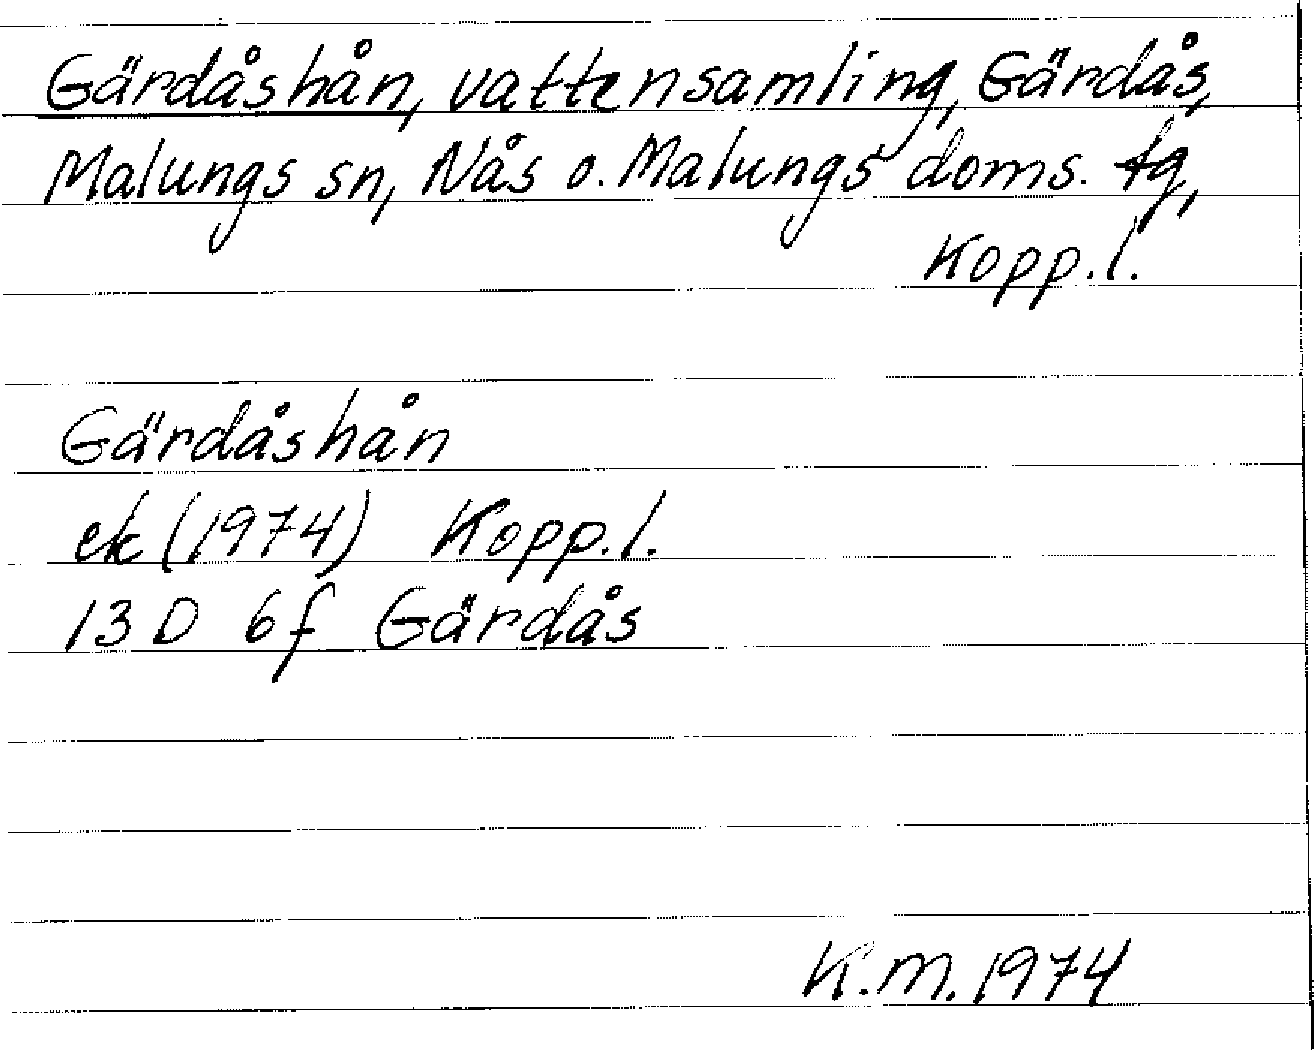 Gärdåshån, vattensamling, Gärdås,
Malungs sn, Nås o. Malungs doms. tg,
Kopp.l.
Gärdåshån
ek (1974) Kopp.l.
13 D 6f Gärdås
K.M. 1974